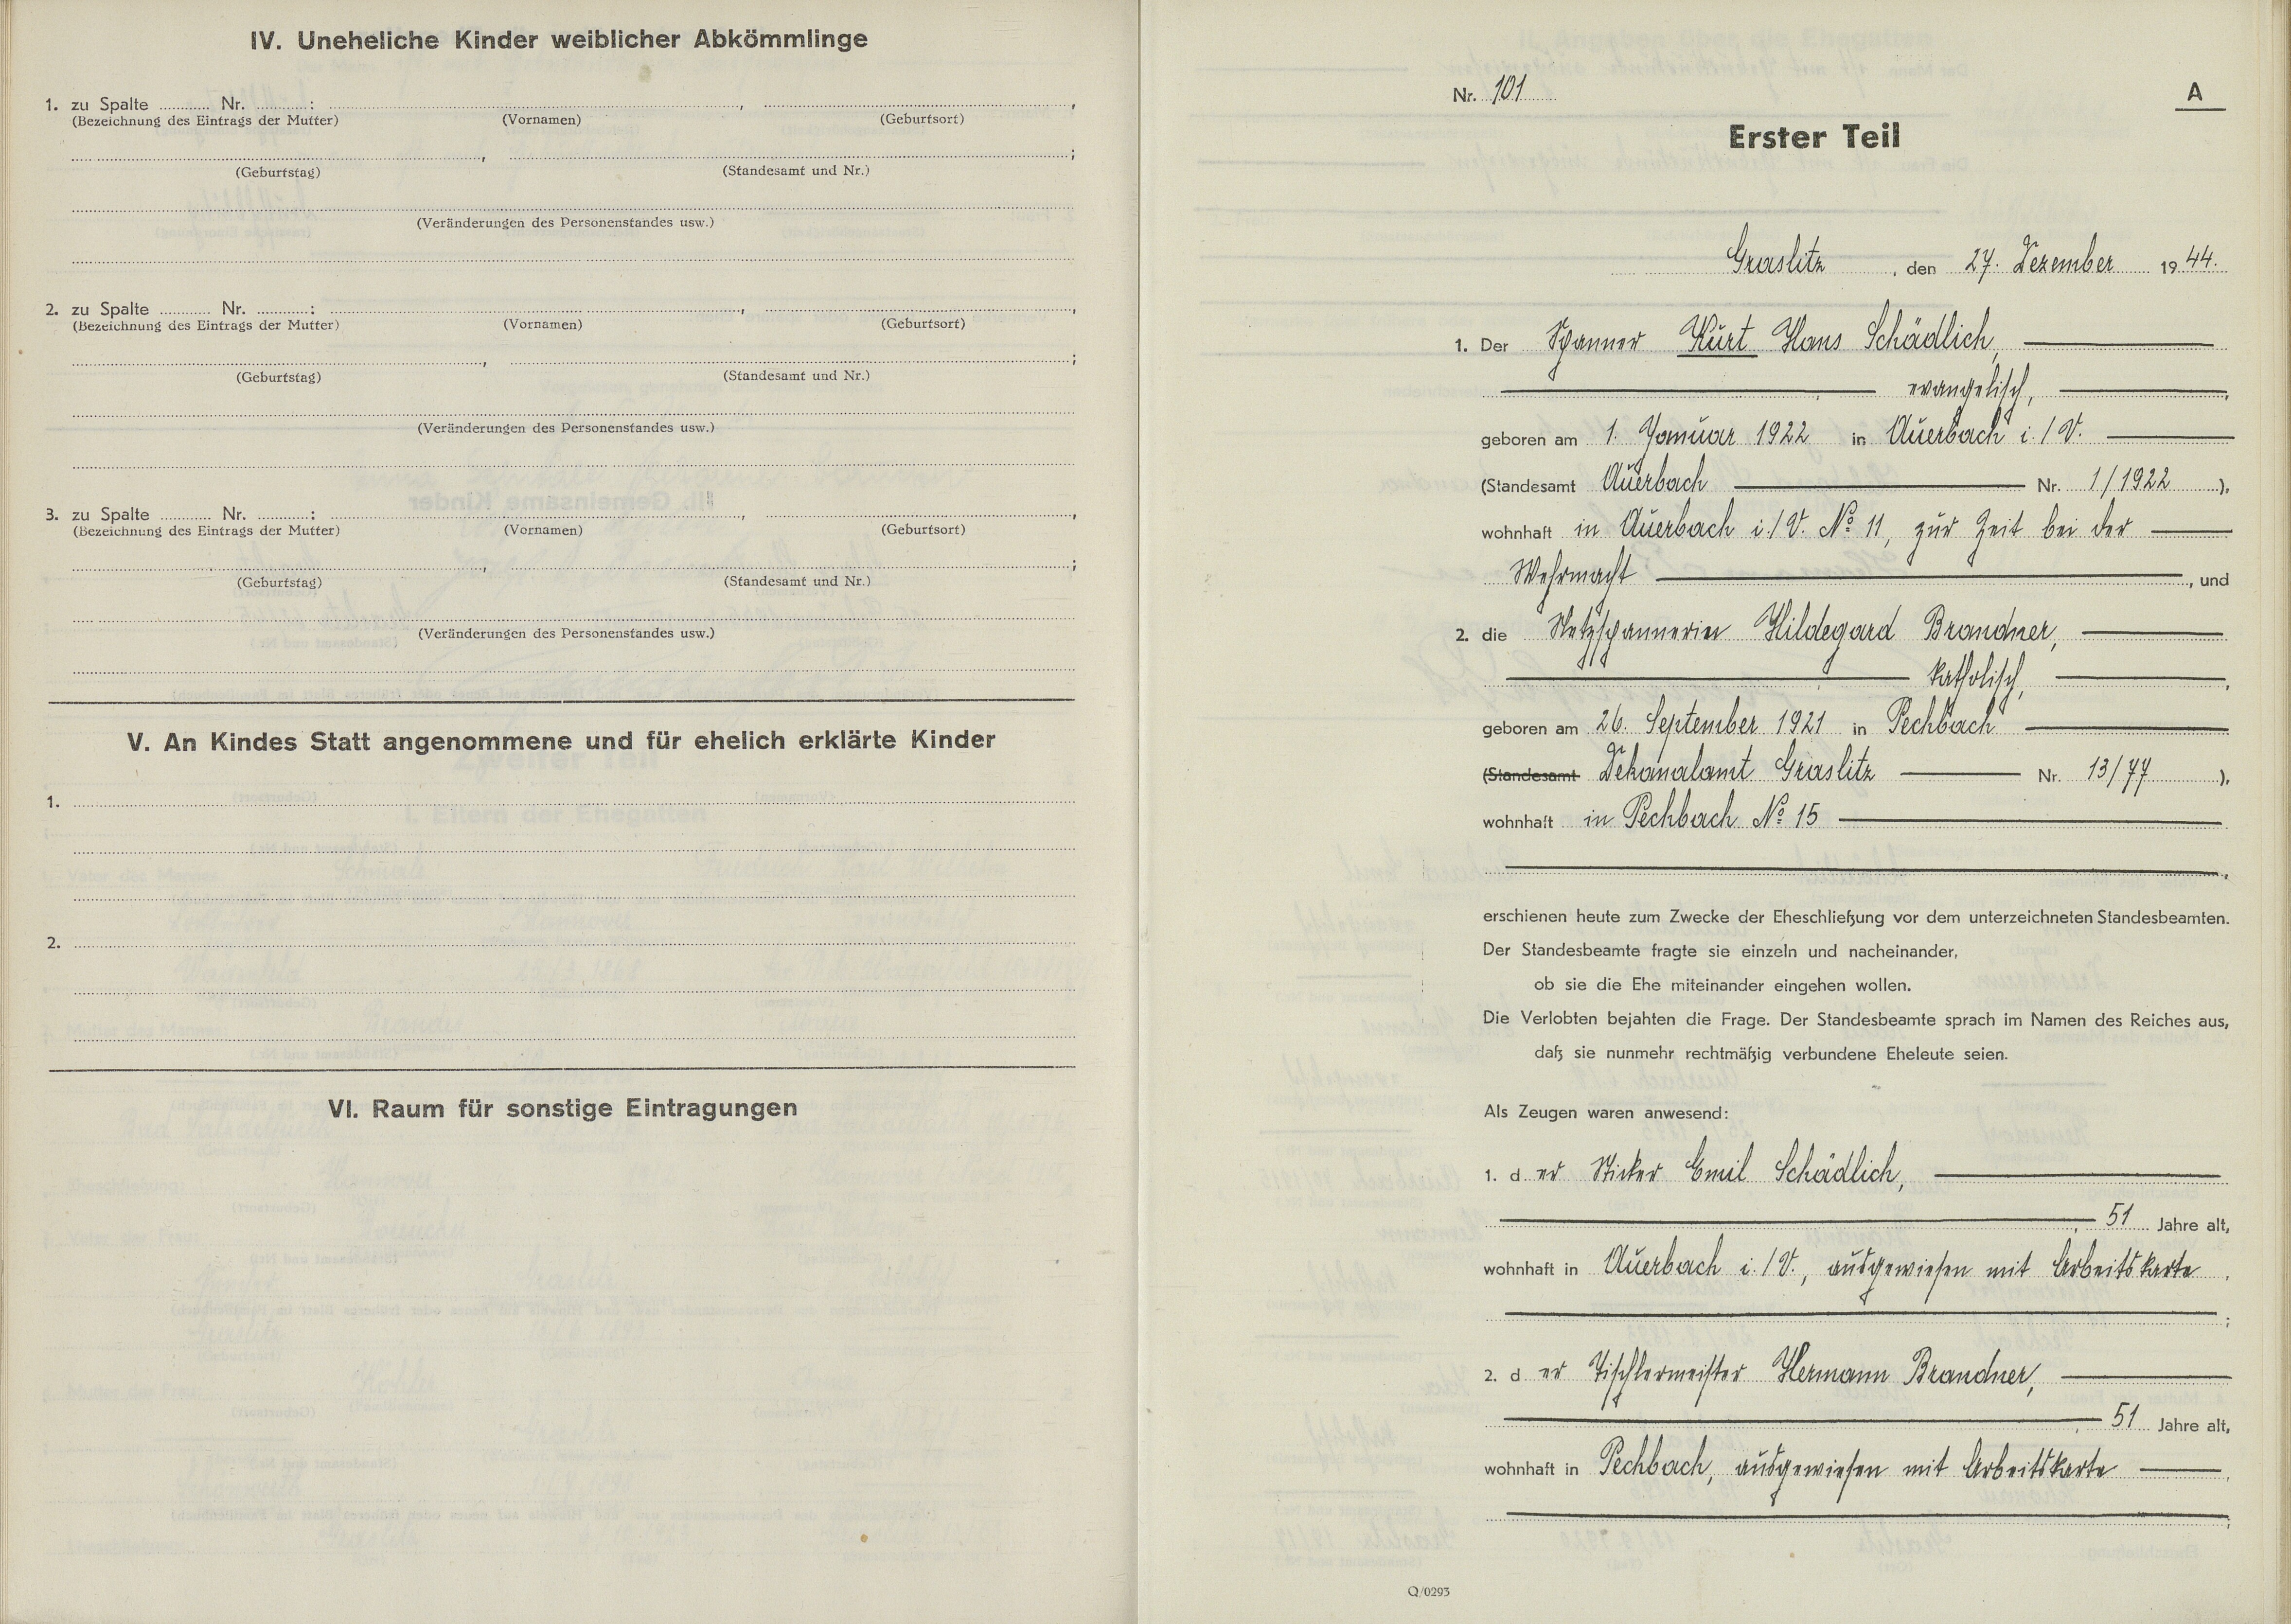 IV. Uneheliche Kinder weiblicher Abkömmlinge
1. zu Spalte ........... Nr. ...........: , ,
(Bezeichnung des Eintrags der Mutter) (Vornamen) (Geburtsort)
, ;
(Geburtstag) (Standesamt und Nr.)
(Veränderungen des Personenstandes usw.)
2. zu Spalte ........... Nr. ...........: , ,
(Bezeichnung des Eintrags der Mutter) (Vornamen) (Geburtsort)
, ;
(Geburtstag) (Standesamt und Nr.)
(Veränderungen des Personenstandes usw.)
3. zu Spalte ........... Nr. ...........: , ,
(Bezeichnung des Eintrags der Mutter) (Vornamen) (Geburtsort)
, ;
(Geburtstag) (Standesamt und Nr.)
(Veränderungen des Personenstandes usw.)
V. An Kindes Statt angenommene und für ehelich erklärte Kinder
1.
2.
VI. Raum für sonstige Eintragungen
Nr. 101 A
Erster Teil
Graslitz, den 27. Dezember 1944.
1. Der Spanner Kurt Hans Schädlich,
evangelisch,
geboren am 1. Januar 1922 in Auerbach i./V.
(Standesamt Auerbach Nr. 1/1922),
wohnhaft in Auerbach i./V. No 11, zur Zeit bei der
Wehrmacht, und
2. die Netzspannerin Hildegard Brandner,
katholisch,
geboren am 26. September 1921 in Pechbach
(Standesamt Dekanalamt Graslitz Nr. 13/77),
wohnhaft in Pechbach No 15
erschienen heute zum Zwecke der Eheschließung vor dem unterzeichneten Standesbeamten.
Der Standesbeamte fragte sie einzeln und nacheinander,
ob sie die Ehe miteinander eingehen wollen.
Die Verlobten bejahten die Frage. Der Standesbeamte sprach im Namen des Reiches aus,
daß sie nunmehr rechtmäßig verbundene Eheleute seien.
Als Zeugen waren anwesend:
1. der Sticker Emil Schädlich,
51 Jahre alt,
wohnhaft in Auerbach i./V., ausgewiesen mit Arbeitskarte
;
2. der Tischlermeister Hermann Brandner,
51 Jahre alt,
wohnhaft in Pechbach, ausgewiesen mit Arbeitskarte
Q/0293